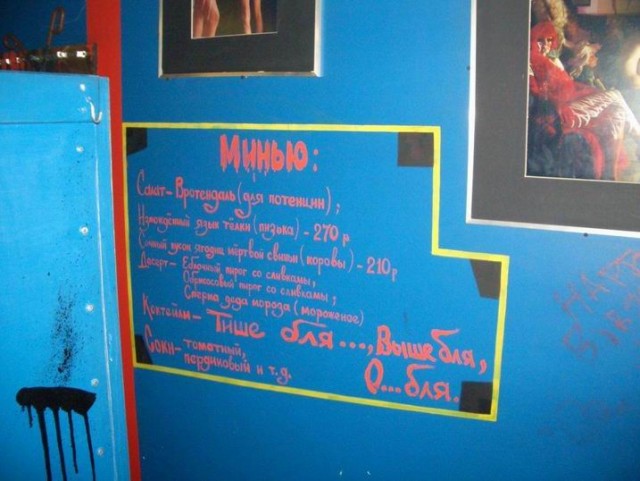 Минью:
Салат- Вротендаль (для потенции);
Измождённый язык телки (пизька) - 270 р
Сочный кусок ягодиц мёртвой свиньи (коровы) - 210р
Десерт- Ебочный пирог со сливками,
Обркосовый пирог со сливками;
Сперма деда мороза (мороженое)
Коктейли- Тише бля..., Выше бля,
О...бля.
Соки- томатный,
пердиковый и т.д.